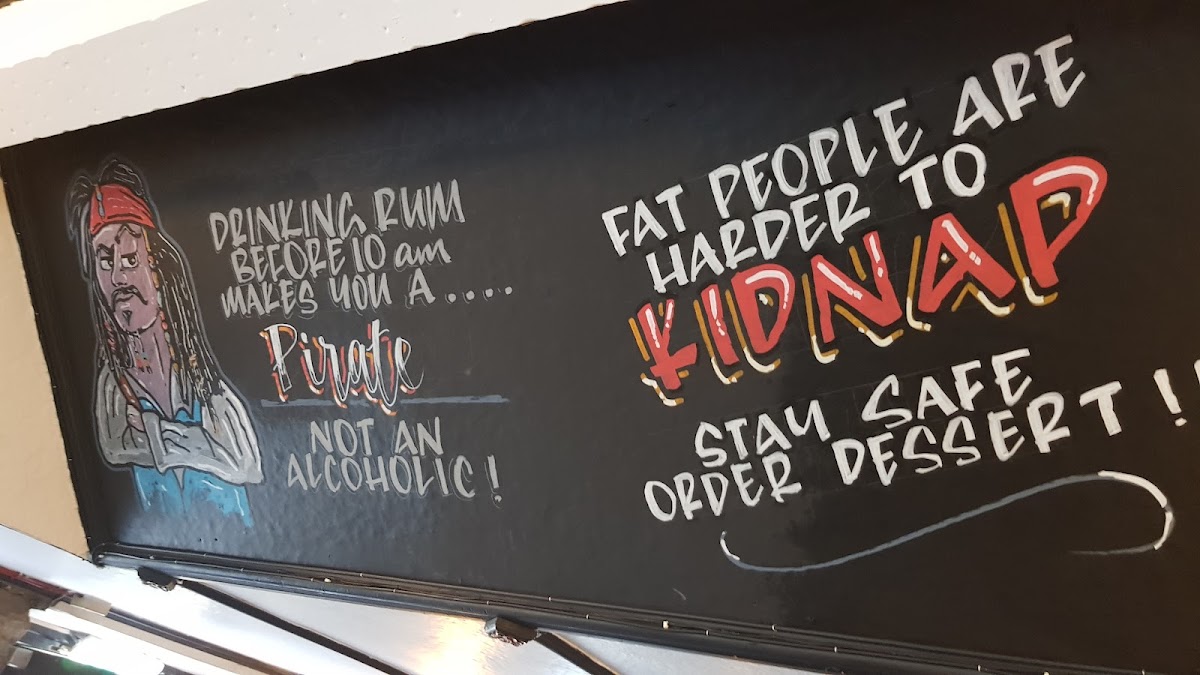 DRINKING RUM
BEFORE 10 am
MAKES YOU A ....
Pirate
NOT AN
ALCOHOLIC!
FAT PEOPLE ARE
HARDER TO
KIDNAP
STAY SAFE
ORDER DESSERT!!